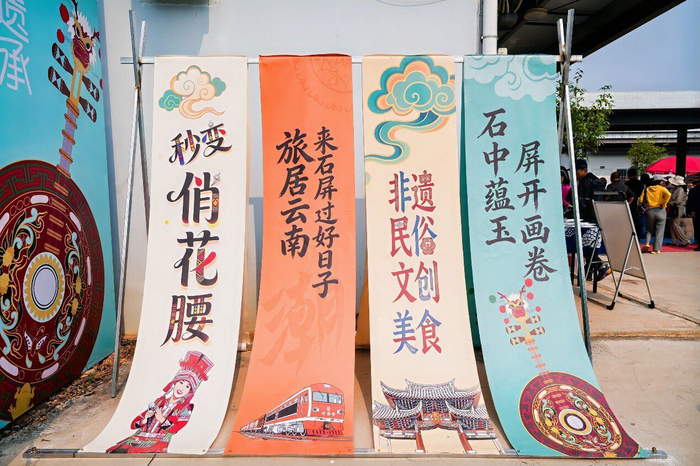 遗
承
秒变
俏花腰
来石屏过好日子
旅居云南
非遗
民俗
文创
美食
石中蕴玉
屏开画卷